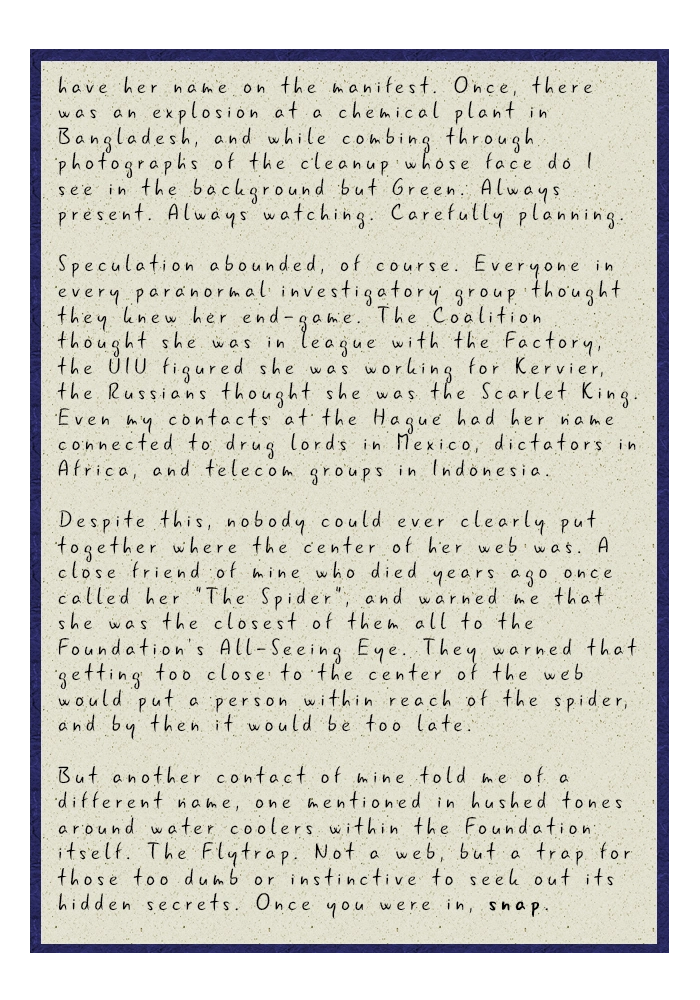 have her name on the manifest. Once, there
was an explosion at a chemical plant in
Bangladesh, and while combing through
photographs of the cleanup whose face do I
see in the background but Green. Always
present. Always watching. Carefully planning.
Speculation abounded, of course. Everyone in
every paranormal investigatory group thought
they knew her end-game. The Coalition
thought she was in league with the Factory,
the UIU figured she was working for Kervier,
the Russians thought she was the Scarlet King.
Even my contacts at the Hague had her name
connected to drug lords in Mexico, dictators in
Africa, and telecom groups in Indonesia.
Despite this, nobody could ever clearly put
together where the center of her web was. A
close friend of mine who died years ago once
called her "The Spider", and warned me that
she was the closest of them all to the
Foundation's All-Seeing Eye. They warned that
getting too close to the center of the web
would put a person within reach of the spider,
and by then it would be too late.
But another contact of mine told me of a
different name, one mentioned in hushed tones
around water coolers within the Foundation
itself. The Flytrap. Not a web, but a trap for
those too dumb or instinctive to seek out its
hidden secrets. Once you were in, snap.